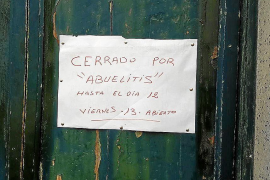 CERRADO POR
"ABUELITIS"
HASTA EL DÍA 12
VIERNES -13- ABIERTO